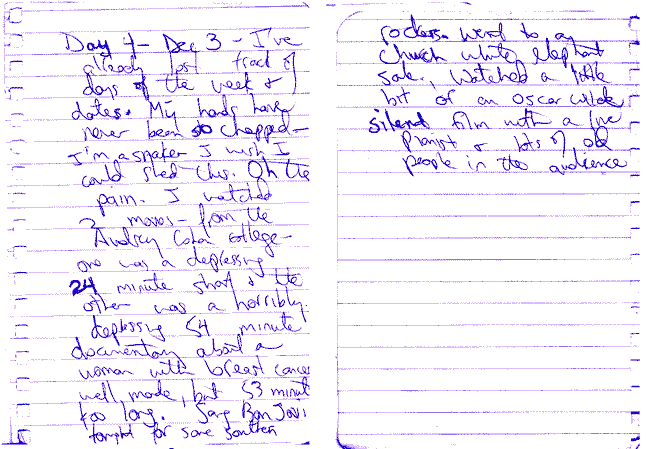 Day 4 - Dec 3 - I've
already lost track of
days of the week &
dates. My hands have
never been so chapped -
I'm a snake I wish I
could shed this. Oh the
pain. I watched
2 movies - from the
Audrey Cohen college -
one was a depressing
24 minute short & the
other was a horribly
depressing 54 minute
documentary about a
woman with breast cancer
well made, but 53 minutes
too long. Sang Bon Jovi
tonight for some southern
rockers. Went to a
Church white elephant
sale. Watched a little
bit of an Oscar Wilde
silent film with a live
pianist & lots of old
people in the audience